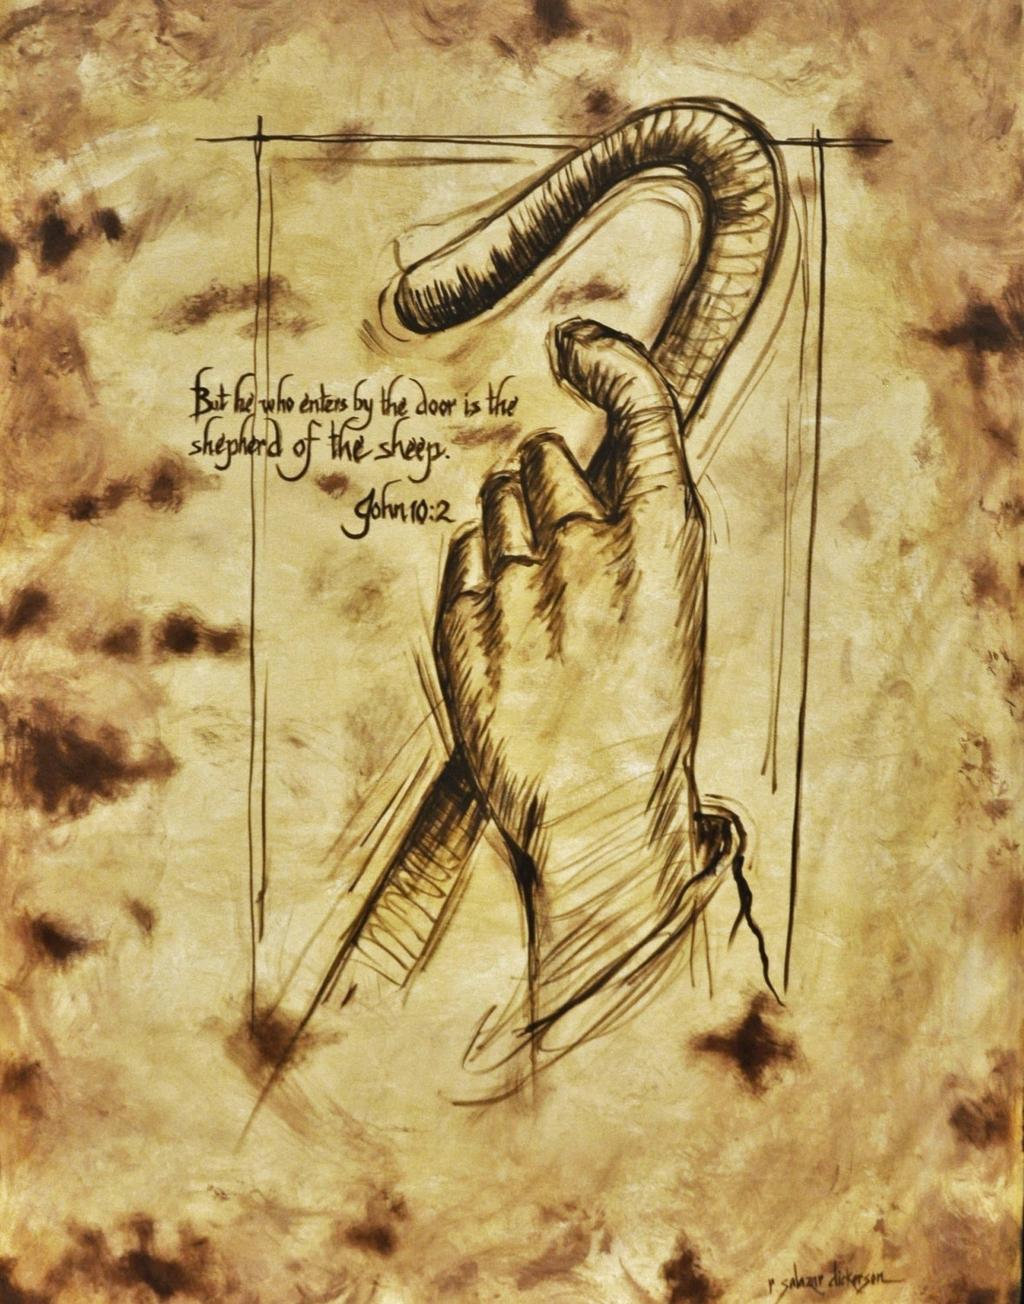 But he who enters by the door is the
shepherd of the sheep.
John 10:2
r salazar dickerson